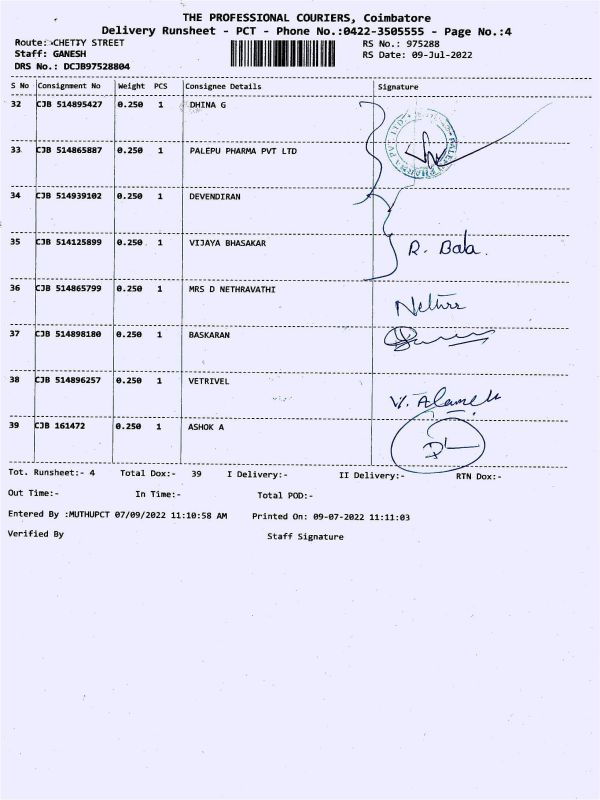 THE PROFESSIONAL COURIERS, Coimbatore
Delivery Runsheet - PCT - Phone No.:0422-3505555 - Page No.:4
Route: CHETTY STREET
RS No.: 975288
Staff: GANESH
RS Date: 09-Jul-2022
DRS No.: DCJB97528804
S No Consignment No Weight PCS Consignee Details Signature
32 CJB 514895427 0.250 1 DHINA G
33 CJB 514865887 0.250 1 PALEPU PHARMA PVT LTD
34 CJB 514939102 0.250 1 DEVENDIRAN
35 CJB 514125899 0.250 1 VIJAYA BHASAKAR R. Bala.
36 CJB 514865799 0.250 1 MRS D NETHRAVATHI
37 CJB 514898180 0.250 1 BASKARAN
38 CJB 514896257 0.250 1 VETRIVEL
39 CJB 161472 0.250 1 ASHOK A
Tot. Runsheet:- 4 Total Dox:- 39 I Delivery:- II Delivery:- RTN Dox:-
Out Time:- In Time:- Total POD:-
Entered By :MUTHUPCT 07/09/2022 11:10:58 AM Printed On: 09-07-2022 11:11:03
Verified By Staff Signature